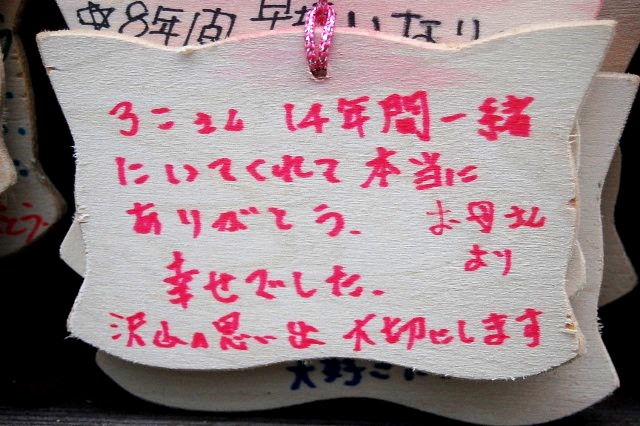 ✡8年間
ろこちゃん 14年間一緒
にいてくれて本当に
ありがとう。
お母さん
より
幸せでした。
沢山の思い出大切にします